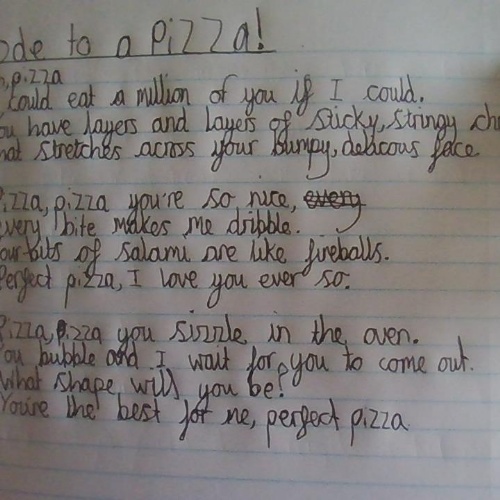 ode to a Pizza!
, pizza
could eat a million of you if I could.
ou have layers and layers of sticky, stringy ch
hat stretches across your bumpy, delicous face
izza, pizza you're so nice, every
very bite makes me dribble.
our bits of salami are like fireballs.
Perfect pizza, I love you ever so.
Pizza, pizza you sizzle in the oven.
You bubble and I wait for you to come out.
What shape will you be?
You're the best for me, perfect pizza